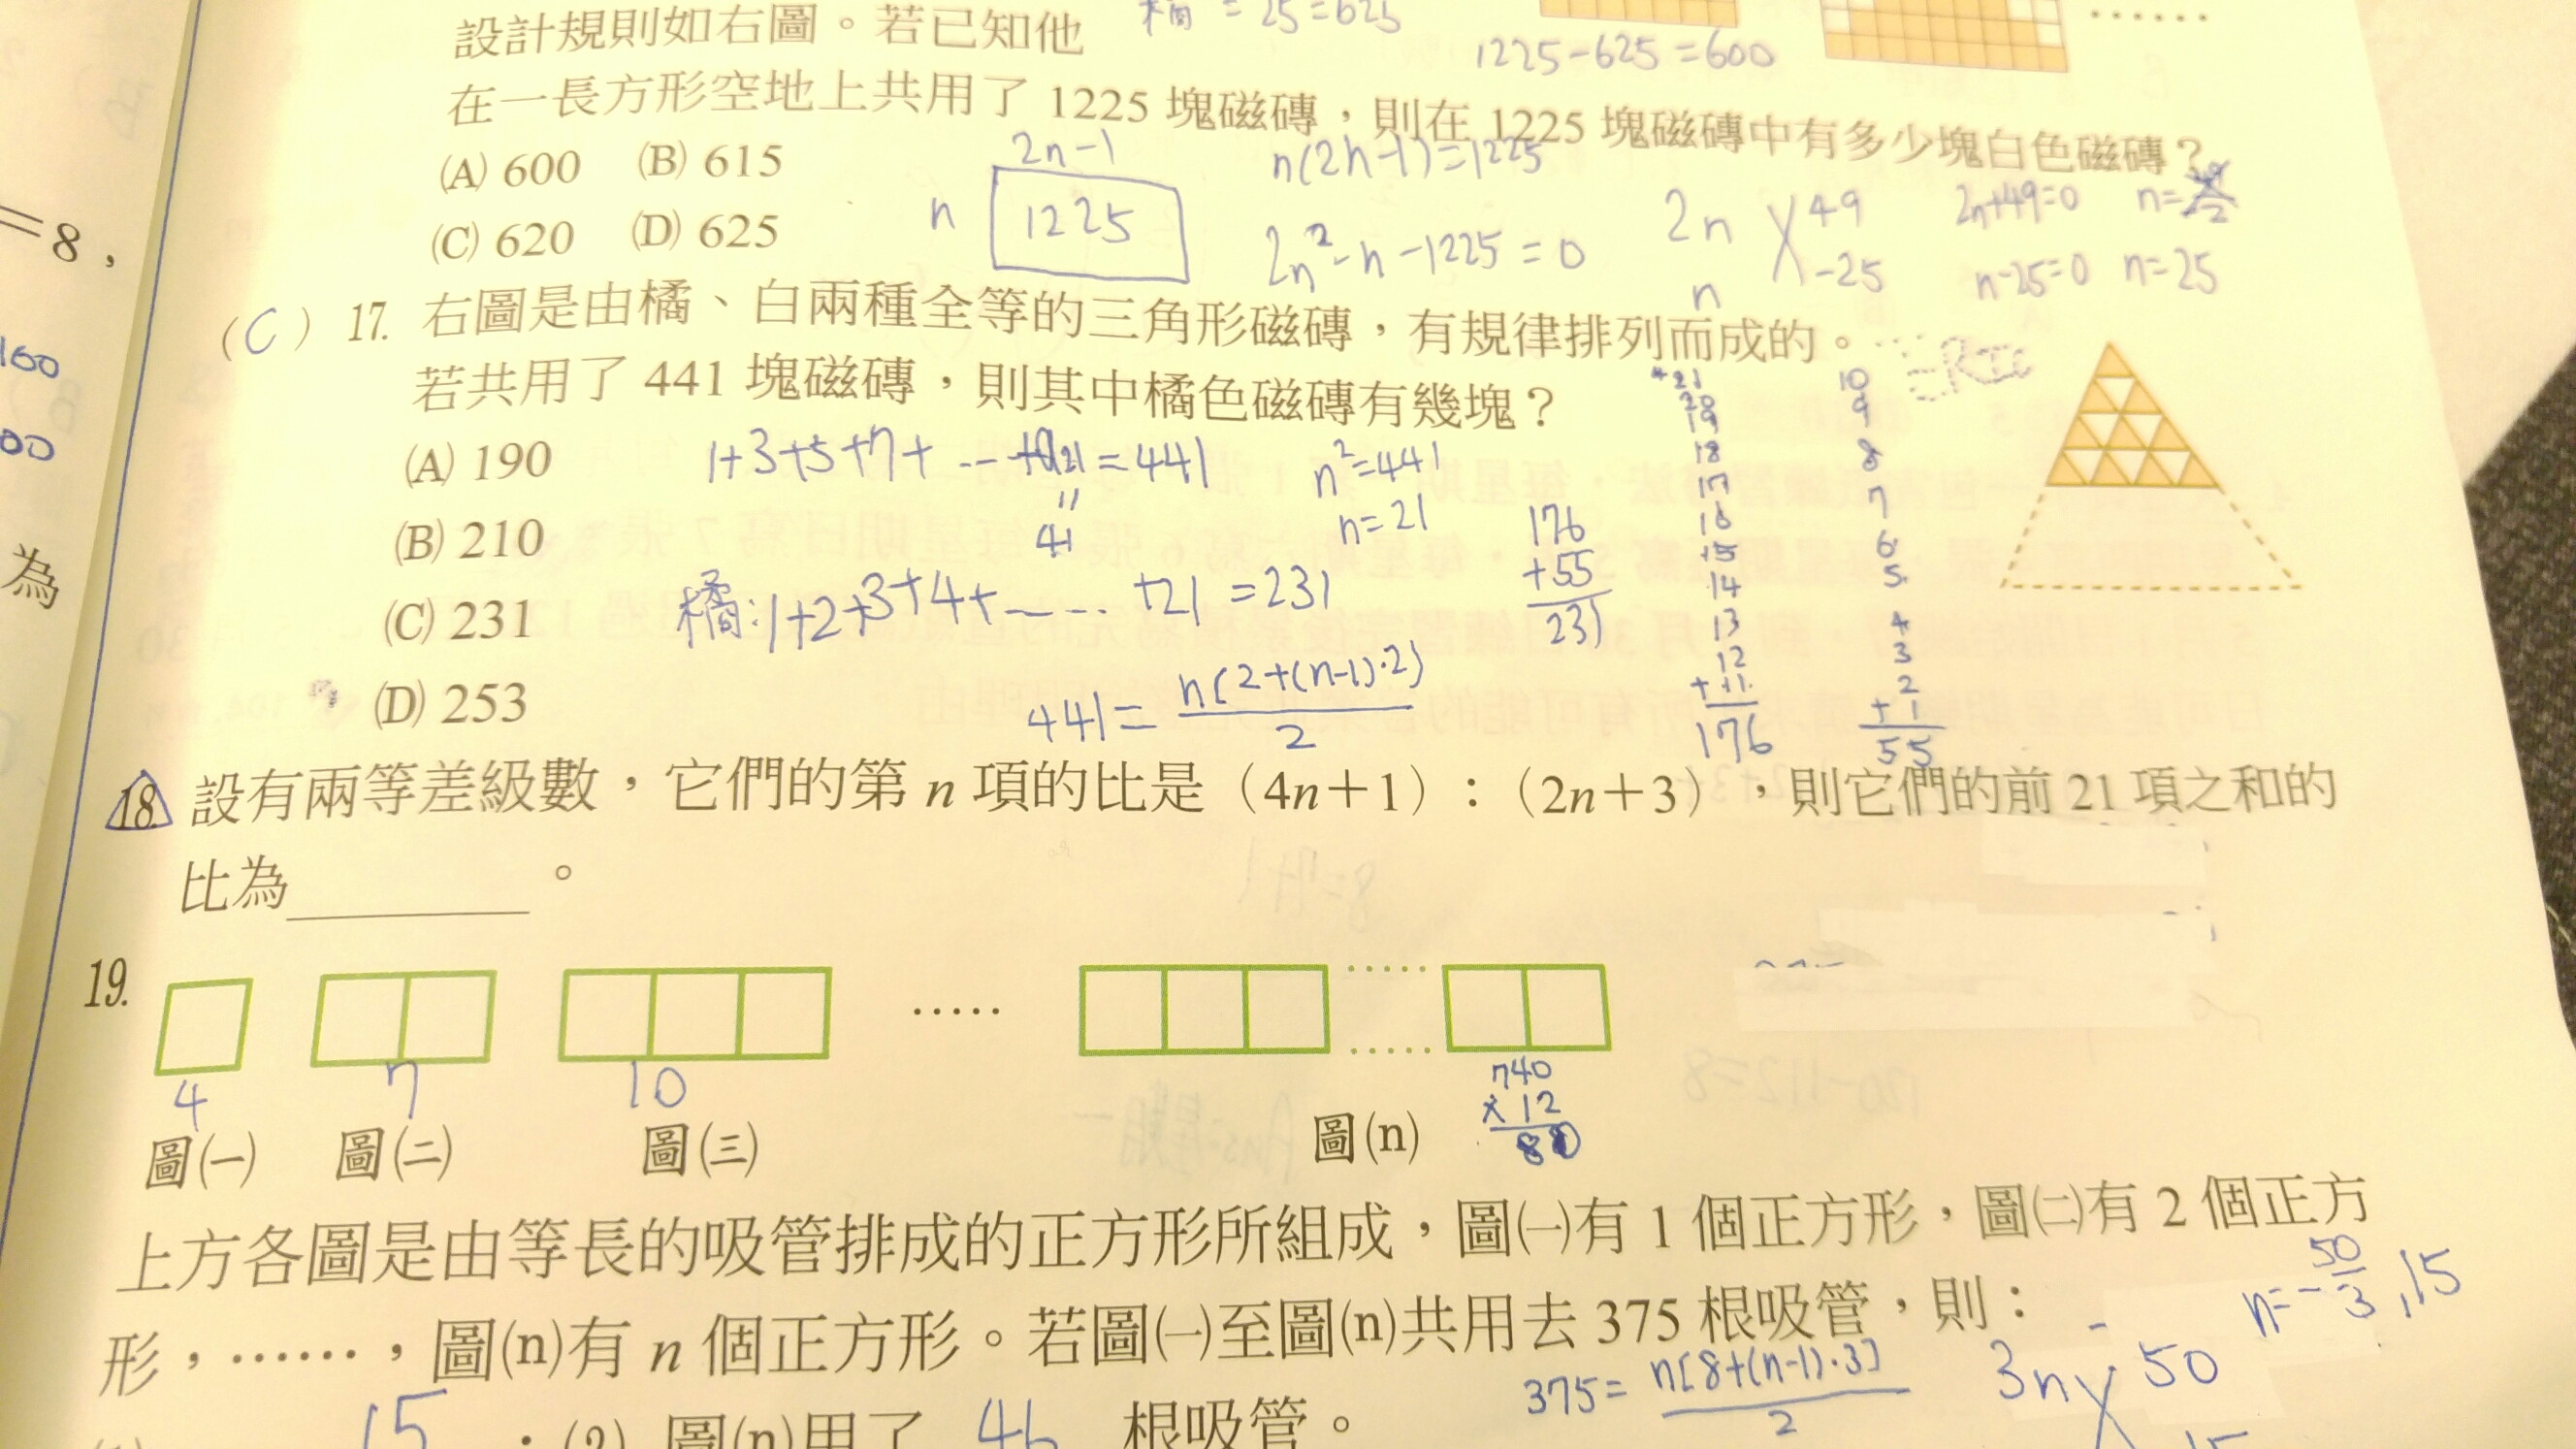 設計規則如右圖。若已知他
橘 = 25 = 625
1225-625=600
……
在一長方形空地上共用了 1225 塊磁磚，則在 1225 塊磁磚中有多少塊白色磁磚？
(A) 600 (B) 615
(C) 620 (D) 625
2n-1
n 1225
n(2n-1)=1225
2n²-n-1225=0
2n 49
n -25
2n+49=0 n=
n-25=0 n=25
=8，
160
00
為
(C) 17. 右圖是由橘、白兩種全等的三角形磁磚，有規律排列而成的。
若共用了 441 塊磁磚，則其中橘色磁磚有幾塊？
(A) 190
(B) 210
(C) 231
(D) 253
1+3+5+7+ --- + =441
"
41
n²=441
n=21
橘:1+2+3+4+ ---- +21 =231
441= n[2+(n-1)·2] / 2
176
+55
231
21
20
19
18
17
16
15
14
13
12
+11
176
10
9
8
7
6
5
4
3
2
+1
55
18. 設有兩等差級數，它們的第 n 項的比是（4n+1）：（2n+3），則它們的前 21 項之和的
比為________。
19.
…… …… ……
4 7 10
圖㈠ 圖㈡ 圖㈢ 圖(n)
740
×12
上方各圖是由等長的吸管排成的正方形所組成，圖㈠有 1 個正方形，圖㈡有 2 個正方
形，……，圖(n)有 n 個正方形。若圖㈠至圖(n)共用去 375 根吸管，則：
n=-50/3,15
375= n[8+(n-1)·3] / 2
3n 50
15 ；(2) 圖(n)用了 46 根吸管。